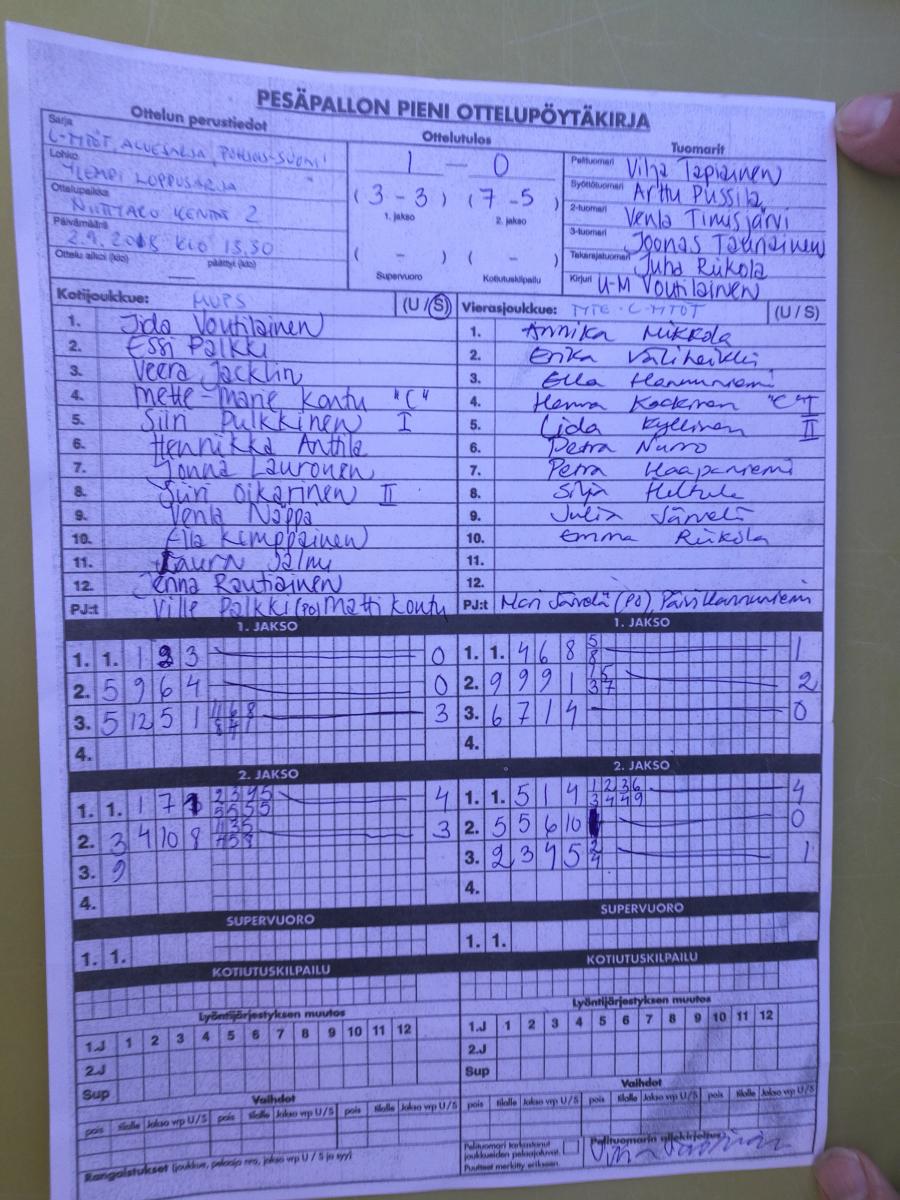 PESÄPALLON PIENI OTTELUPÖYTÄKIRJA
Ottelun perustiedot
Ottelutulos
Tuomarit
Sarja
C-MTÖT, ALUESARJA, POHJOIS-SUOMI
Lohko
YLEMPI LOPPUSARJA
Ottelupaikka
KENTTÄ 2
Päivämäärä
KLO 13.30
Ottelu alkoi (klo) päättyi (klo)
1 - 0
(3 - 3) (7 - 5)
1. jakso 2. jakso
( - ) ( - )
Supervuoro Kotiutuskilpailu
Pelituomari Vilja Tapiainen
Syöttötuomari Arttu Pussila
2-tuomari Venla Timisjärvi
3-tuomari Joonas
Takarajatuomari Juha Riikola
Kirjuri U-M Voutilainen
Kotijoukkue: MUPS (U / S)
1. Iida Voutilainen
2. Essi Palkki
3. Veera Jacklin
4. Mette-Marie Kontu "C"
5. Siiri Pulkkinen I
6. Henriikka Anttila
7. Jonna Lauronen
8. Siiri Oikarinen II
9. Venla Näppä
10. Eila Kemppainen
11. Laura Jalmu
12. Jenna Rautiainen
PJ:t Ville Palkki (PO) Matti Kontu
Vierasjoukkue: C-MTÖT (U / S)
1. Annika Mikkola
2. Erika Väliheikki
3. Ella Hannuniemi
4. Henna "C" I
5. Iida Kyllinen II
6. Petra Nurro
7. Petra Haapaniemi
8. Silja Heltula
9. Julia Järvelä
10. Emma Riikola
11.
12.
PJ:t Mari Järvelä (PO), Päivi Hannuniemi
1. JAKSO
1. 1. 1 2 3 0
2. 5 9 6 4 0
3. 5 12 5 1 3
4.
1. JAKSO
1. 1. 4 6 8 5 8 1
2. 9 9 9 1 2
3. 6 7 1 4 0
4.
2. JAKSO
1. 1. 1 7 4
2. 3 4 10 8 3
3. 9
4.
2. JAKSO
1. 1. 5 1 4 4
2. 5 5 6 10 0
3. 2 3 4 5 2 4 1
4.
SUPERVUORO
1. 1.
SUPERVUORO
1. 1.
KOTIUTUSKILPAILU
KOTIUTUSKILPAILU
Lyöntijärjestyksen muutos
1.J 1 2 3 4 5 6 7 8 9 10 11 12
2.J
Sup
Lyöntijärjestyksen muutos
1.J 1 2 3 4 5 6 7 8 9 10 11 12
2.J
Sup
Vaihdot
pois tilalle Jakso vrp U / S pois tilalle Jakso vrp U / S pois tilalle Jakso vrp U / S
Vaihdot
pois tilalle Jakso vrp U / S pois tilalle Jakso vrp U / S pois tilalle Jakso vrp U / S
Rangaistukset (joukkue, pelaaja nro, jakso vrp U / S ja syy)
Pelituomari tarkastanut
joukkueiden pelaajaluvat.
Puutteet merkitty erikseen.
Pelituomarin allekirjoitus